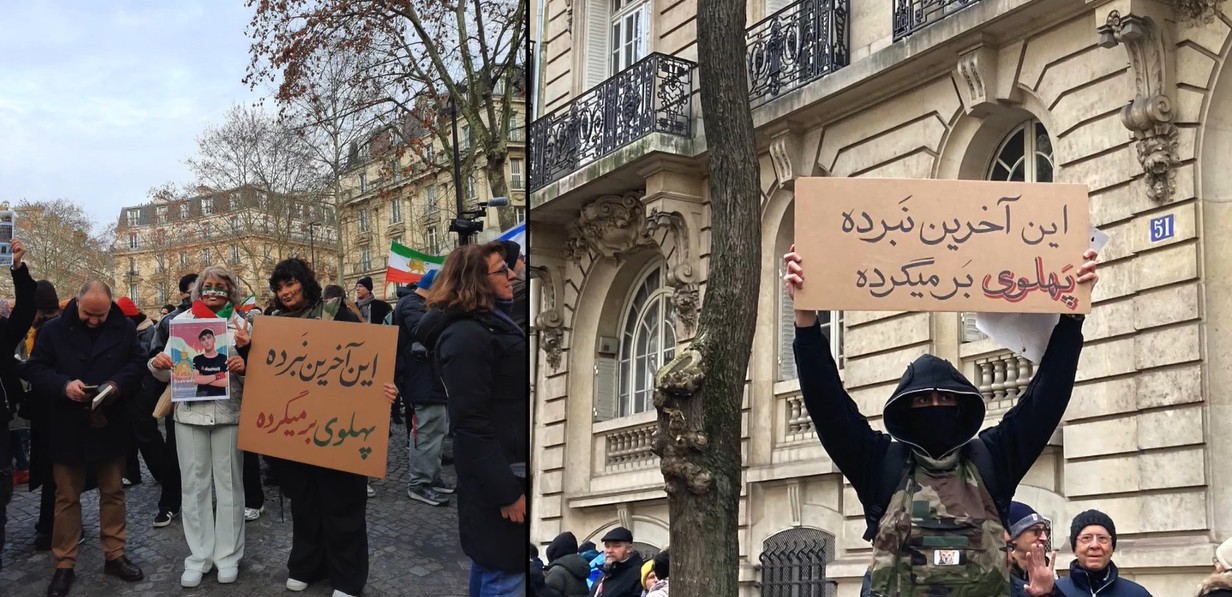 این آخرین نبرده
پهلوی برمیگرده
این آخرین نَبرده
پَهلوی بَر میگرده
51